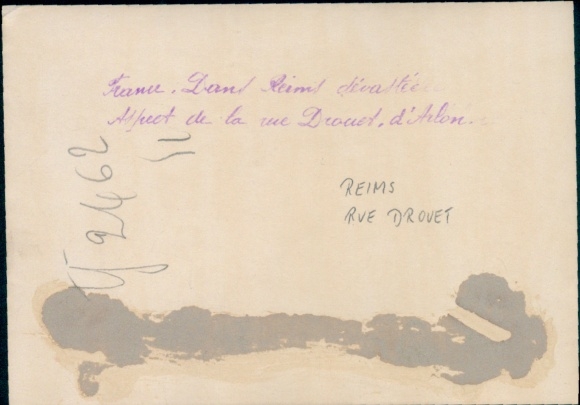 France. Dans Reims dévastée.
Aspect de la rue Drouet, d'Arlon.
REIMS
RUE DROUET